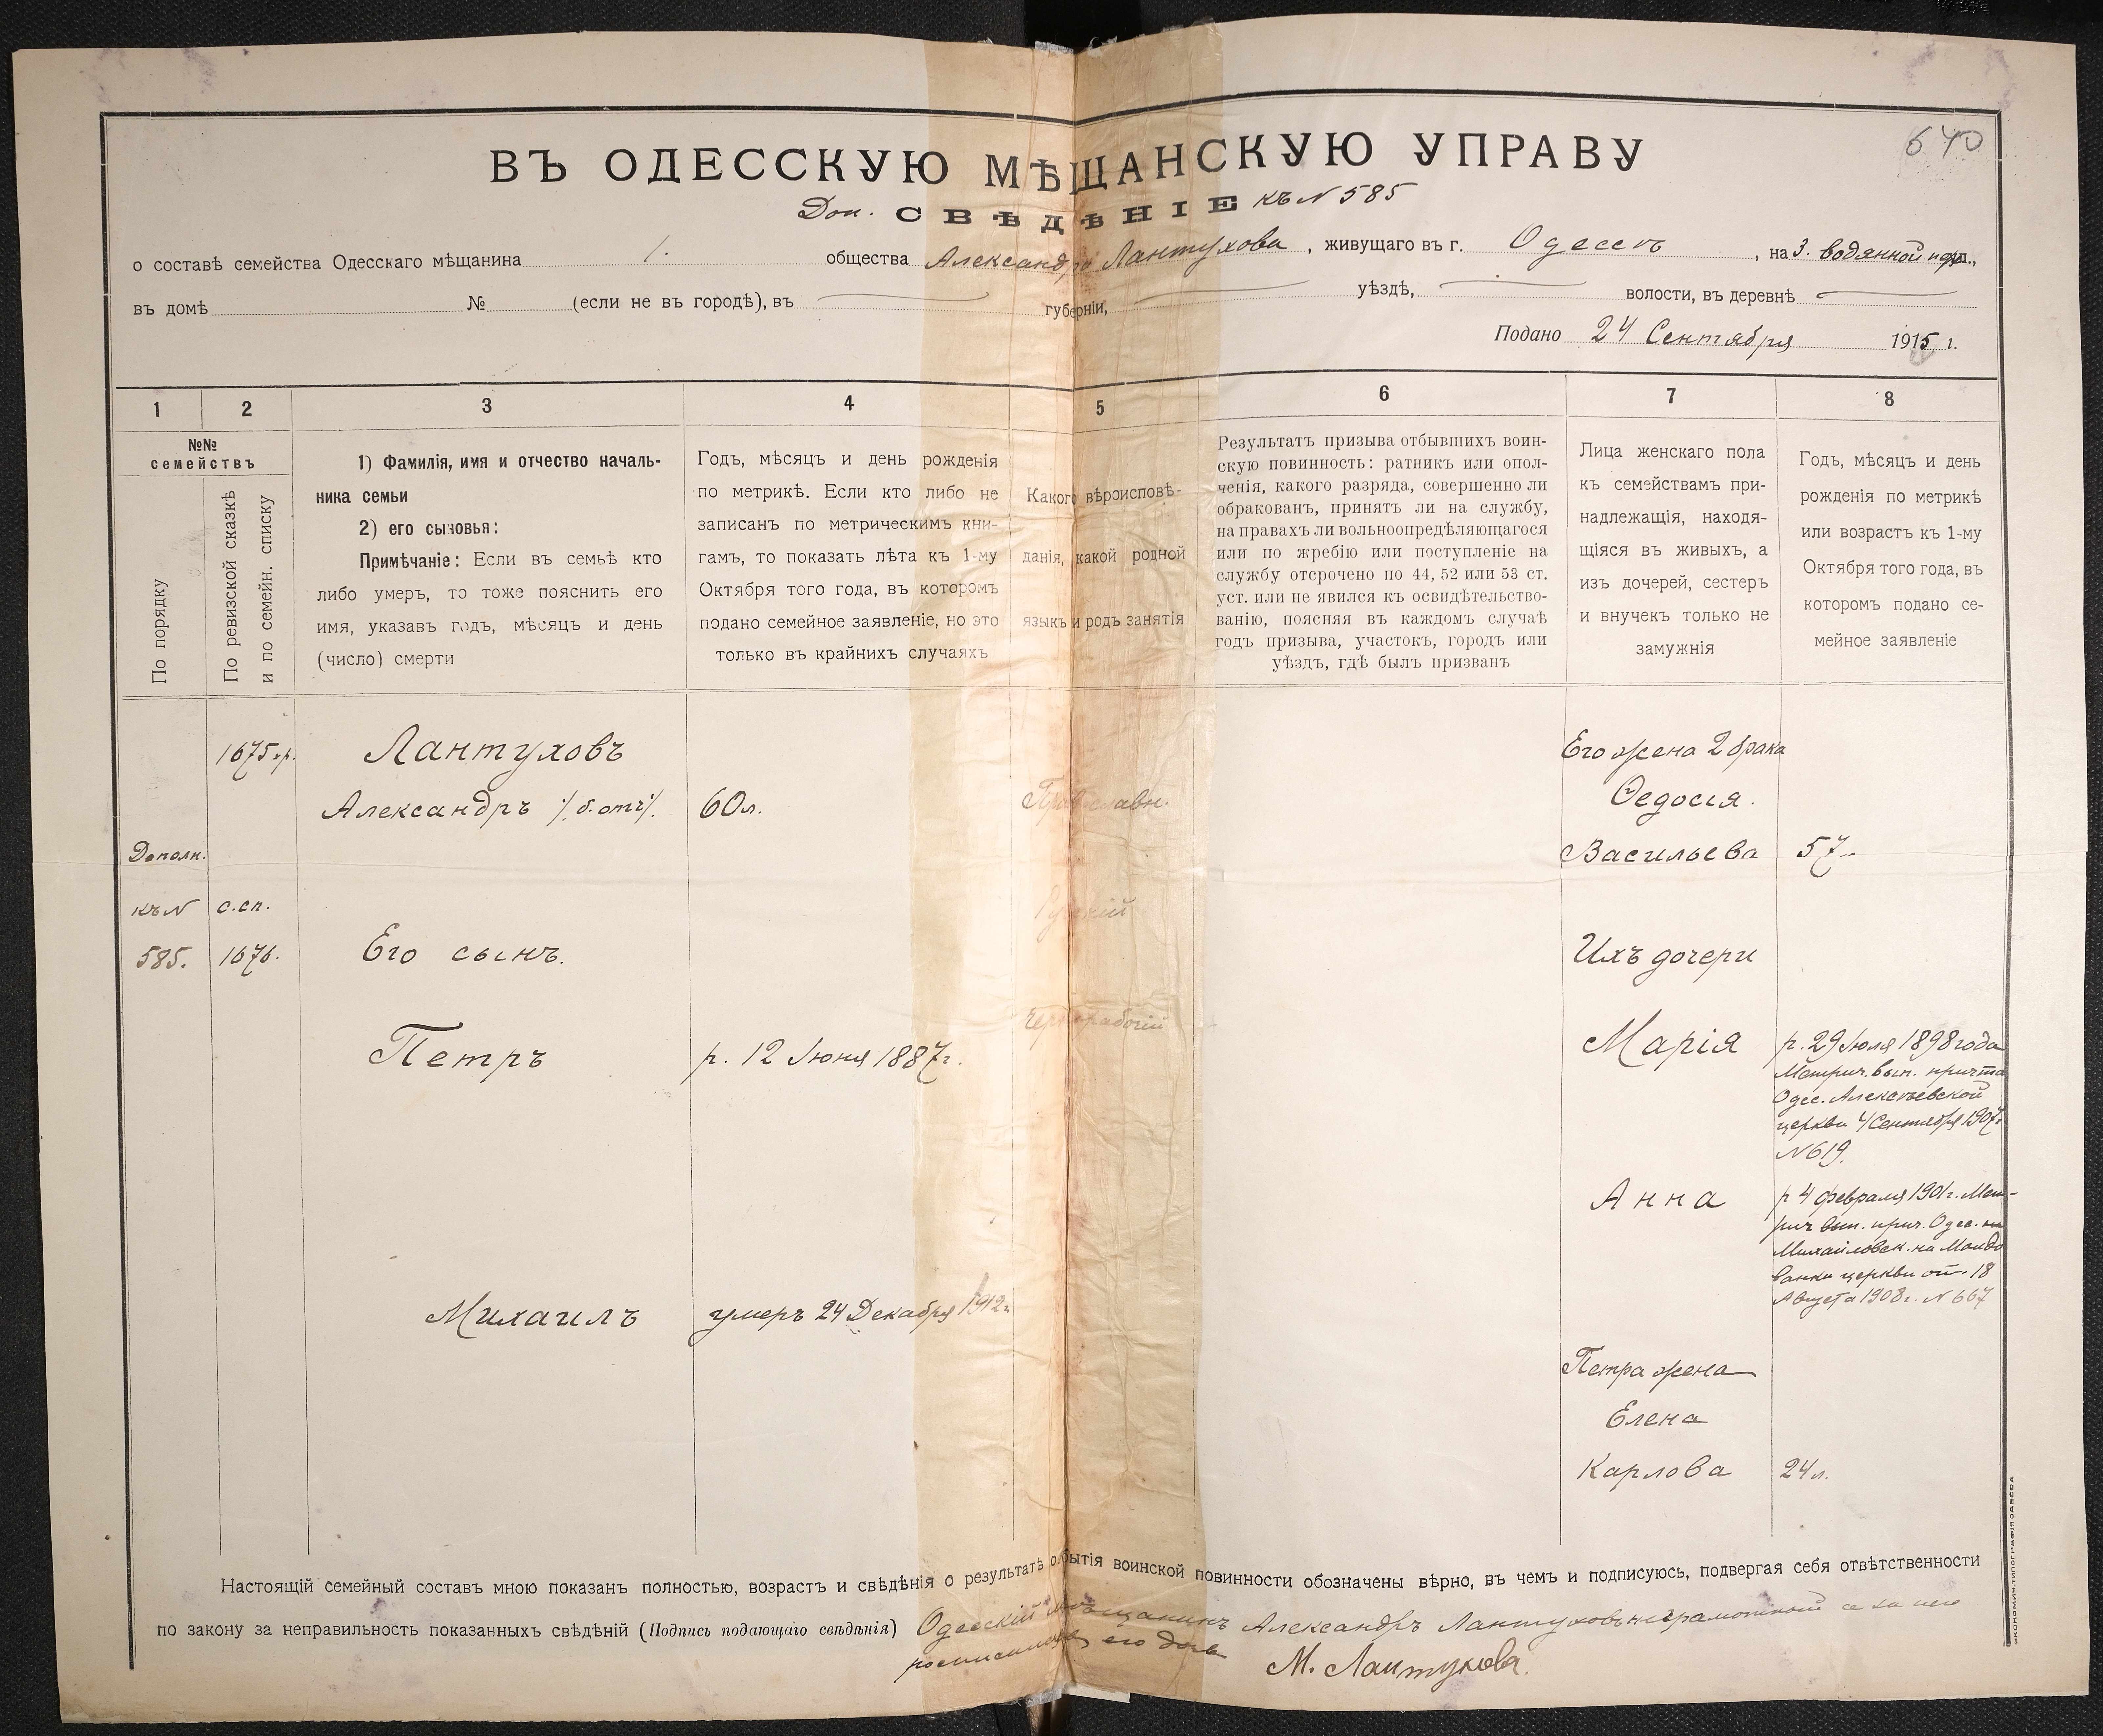 640
ВЪ ОДЕССКУЮ МѢЩАНСКУЮ УПРАВУ
Доп. СВѢДѢНІЕ къ N 585
о составѣ семейства Одесскаго мѣщанина 1. общества Александра Лантухова, живущаго въ г. Одессѣ, на 3. водянной ул.,
въ домѣ № (если не въ городѣ), въ губерніи, уѣздѣ, волости, въ деревнѣ
Подано 24 Сентября 1915 г.
1 2 3 4 5 6 7 8
№№
семействъ
По порядку
По ревизской сказкѣ
и по семейн. списку
1) Фамилія, имя и отчество началь-
ника семьи
2) его сыновья:
Примѣчаніе: Если въ семьѣ кто
либо умеръ, то тоже пояснить его
имя, указавъ годъ, мѣсяцъ и день
(число) смерти
Годъ, мѣсяцъ и день рожденія
по метрикѣ. Если кто либо не
записанъ по метрическимъ кни-
гамъ, то показать лѣта къ 1-му
Октября того года, въ которомъ
подано семейное заявленіе, но это
только въ крайнихъ случаяхъ
Какого вѣроисповѣ-
данія, какой родной
языкъ и родъ занятія
Результатъ призыва отбывшихъ воин-
скую повинность: ратникъ или опол-
ченія, какого разряда, совершенно ли
обракованъ, принятъ ли на службу,
на правахъ ли вольноопредѣляющагося
или по жребію или поступленіе на
службу отсрочено по 44, 52 или 53 ст.
уст. или не явился къ освидѣтельство-
ванію, поясняя въ каждомъ случаѣ
годъ призыва, участокъ, городъ или
уѣздъ, гдѣ былъ призванъ
Лица женскаго пола
къ семействамъ при-
надлежащія, находя-
щіяся въ живыхъ, а
изъ дочерей, сестеръ
и внучекъ только не
замужнія
Годъ, мѣсяцъ и день
рожденія по метрикѣ
или возрастъ къ 1-му
Октября того года, въ
которомъ подано се-
мейное заявленіе
Дополн.
къ N
585.
1675 р.
с.сп.
1676.
Лантуховъ
Александръ /б. отч/.
Его сынъ.
Петръ
Михаилъ
60 л.
р. 12 Іюня 1887 г.
умеръ 24 Декабря 1912 г.
Православн.
Русскій
Чернорабочій
Его жена 2 брака
Ѳедосія.
Васильева 57
Ихъ дочери
Марія
р. 29 Іюля 1898 года
Метрич. вып. причта
Одес. Алексѣевской
церкви 4 Сентября 1907 г.
N 619.
Анна
р 4 февраля 1901 г. Мет-
рич вып. прич. Одес.
Михайловск. на Молда
ванки церкви от. 18
Августа 1908 г. N 667
Петра жена
Елена
Карлова 24 л.
Настоящій семейный составъ мною показанъ полностью, возрастъ и свѣдѣнія о результатѣ отбытія воинской повинности обозначены вѣрно, въ чемъ и подписуюсь, подвергая себя отвѣтственности
по закону за неправильность показанныхъ свѣдѣній (Подпись подающаго свѣдѣнія) Одесскій мѣщанинъ Александръ Лантуховъ неграмотной а за него
его дочь М. Лантухова.
ЭКОНОМИЧ. ТИПОГРАФІЯ